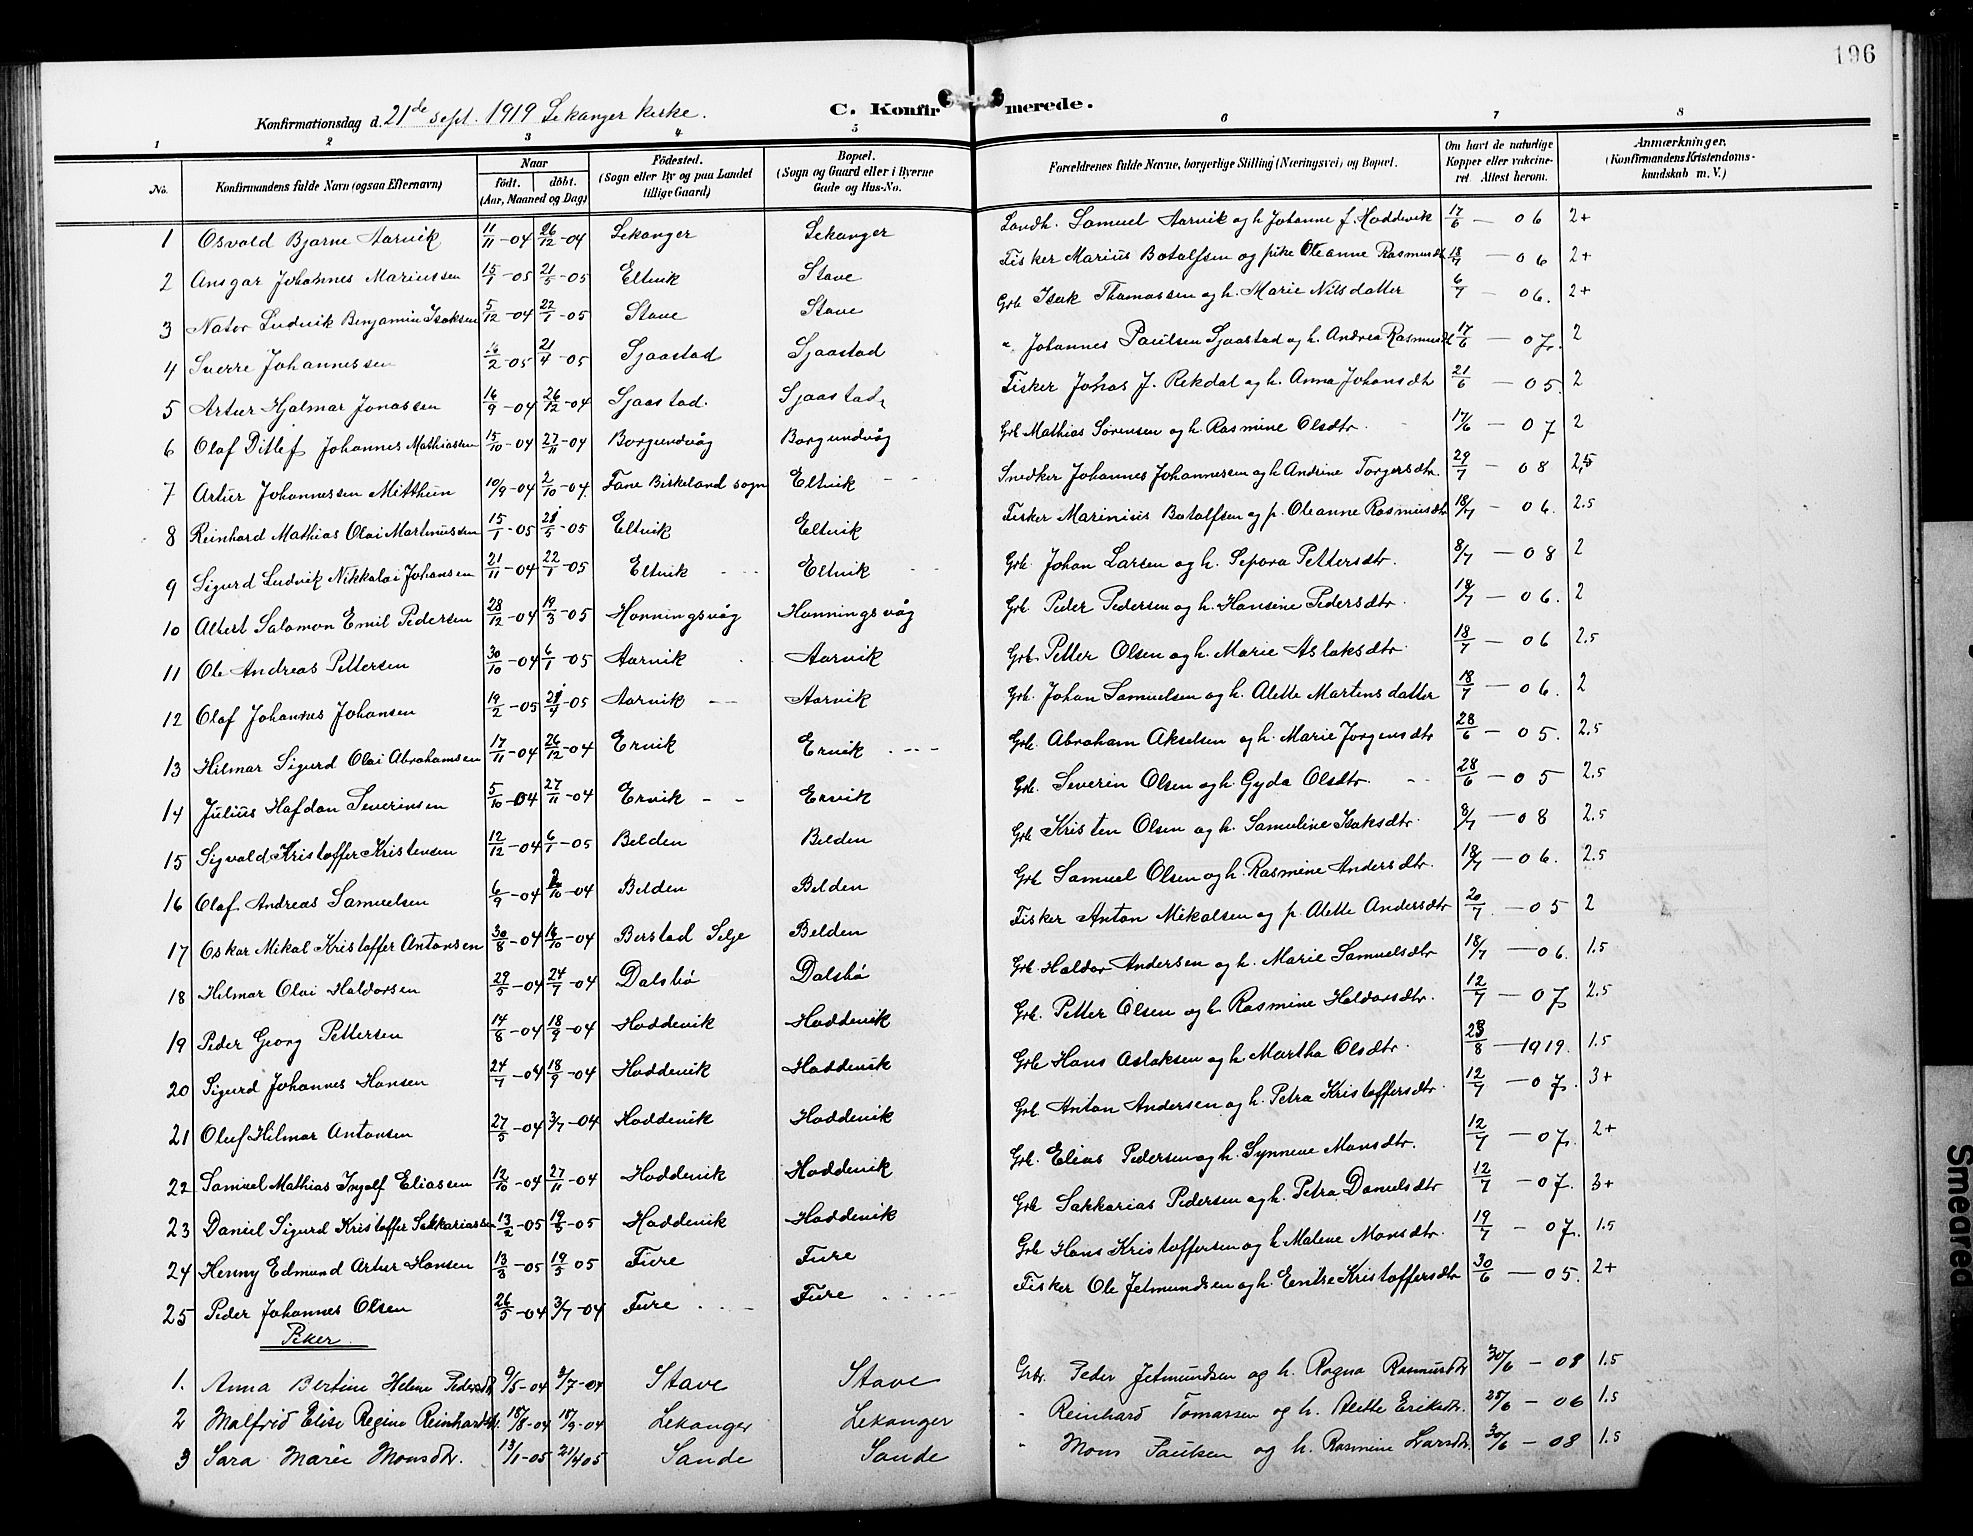 196
Konfirmationsdag d. 21de sept. 1919 Lekanger kirke. C. Konfirmerede.
1 2 3 4 5 6 7 8
No. Konfirmandens fulde Navn (ogsaa Efternavn) Naar født. døbt. (Aar, Maaned og Dag) Fødested. (Sogn eller By og paa Landet tillige Gaard) Bopæl. (Sogn og Gaard eller i Byerne Gade og Hus-No. Forældrenes fulde Navne, borgerlige Stilling (Næringsvei) og Bopæl. Om havt de naturlige Kopper eller vakcineret. Attest herom. Anmærkninger, (Konfirmandens Kristendomskundskab m. V.)
1 Osvald Bjarne Aarvik 11/11-04 26/12-04 Lekanger Lekanger Landh. Samuel Aarvik og h Johanne f. Hoddevik 17/6 - 06 2+
2 Ansgar Johannes Mariussen 15/1-05 21/5-05 Eltvik Stave Fisker Marius Botolfsen og pike Oleanne Rasmusdtr 18/7 - 06 2+
3 Nator Ludvik Benjamin Isaksen 5/12-04 22/1-05 Stave Stave Grb Isak Thomassen og h. Marie Nilsdatter 6/7 - 06. 2+
4 Sverre Johannessen 16/2-05 21/4-05 Sjaastad Sjaastad " Johannes Paulsen Sjaastad og h. Andrea Rasmusdt 17/6 - 07. 2
5 Artur Hjalmar Jonassen 16/9-04 26/12-04 Sjaastad. Sjaastad Fisker Johas J. Rekdal og h. Anna Johansdt 21/6 - 05. 2
6 Olaf Ditlef Johannes Mathiassen 15/10-04 27/11-04 Borgundvåg Borgundvåg Grb Mathias Sørensen og h. Rasmine Olsdtr. 17/6 - 07 2
7 Artur Johannessen Mitthun 10/9-04 2/10-04. Fane Birkeland sogn Eltvik Snedker Johannes Johannessen og h Andrine Torgersdtr. 29/7 - 08 2,5
8 Reinhard Mathias Olai Martinussen 15/1-05 21/5-05 Eltvik Eltvik Fisker Marinius Botolfsen og p. Oleanne Rasmusdtr 18/7 - 06. 2.5
9 Sigurd Ludvik Nikkolai Johansen 21/11-04 22/1-05 Eltvik Eltvik Grb. Johan Larsen og h. Sepora Pettersdtr. 8/7 - 08 2
10 Albert Salomon Emil Pedersen 28/12-04 19/3-05 Honningsvåg Honningsvåg Grb Peder Pedersen og h. Hansine Pedersdtr. 18/7 - 06. 2
11 Ole Andreas Pettersen 30/10-04 6/1-05 Aarvik Aarvik Grb Petter Olsen og h. Marie Aslaksdtr. 18/7 - 06 2.5
12 Olaf Johannes Johansen 19/2-05 21/4-05 Aarvik Aarvik Grb. Johan Samuelsen og h. Alette Martensdatter 18/7 - 06. 2
13 Hilmar Sigurd Olai Abrahamsen 17/11-04 26/12-04 Ervik Ervik Grb. Abraham Akselsen og h. Marie Jørgensdtr 28/6 - 05. 2.5
14 Julius Hafdan Severinsen 5/10-04 27/11-04 Ervik Ervik Grb. Severin Olsen og h. Gyda Olsdtr. 28/6 - 05 2.5
15 Sigvald Kristoffer Kristensen 12/12-04 6/1-05 Belden Belden Grb Kristen Olsen og h. Samueline Isaksdtr. 8/7 - 08 2.5
16 Olaf. Andreas Samuelsen 6/9-04 2/10-04 Belden Belden Grb Samuel Olsen og h. Rasmine Andersdtr. 18/7 - 06. 2.5
17 Oskar Mikal Kristoffer Antonsen 30/8-04 16/10-04 Berstad Selje Belden Fisker Anton Mikalsen og p. Alette Andersdtr 20/7 - 05 2
18 Hilmar Olai Haldorsen 29/5-04 24/7-04 Dalsbø Dalsbø Grb Haldor Andersen og h. Marie Samuelsdtr 18/7 - 06. 1.5
19 Peder Georg Pettersen 14/8-04 18/9-04 Hoddevik Hoddevik Grb. Petter Olsen og h Rasmine Haldorsdtr. 12/7 - 07 2.5
20 Sigurd Johannes Hansen 24/7-04 18/9-04 Hoddevik Hoddevik Grb Hans Aslaksen og h Martha Olsdtr. 23/8 - 1919. 1.5
21 Oluf Hilmar Antonsen 27/5-04 3/7-04 Hoddevik Hoddevik Grb Anton Andersen og h. Petra Kristoffersdtr. 12/7 - 07. 3+
22 Samuel Mathias Ingolf Eliassen 12/10-04 27/11-04 Hoddevik Hoddevik Grb. Elias Pedersen og h. Synneve Monsdtr. 12/7 - 07. 2+
23 Daniel Sigurd Kristoffer Sakkariassen 13/2-05 19/5-05 Hoddevik Hoddevik Grb Sakkarias Pedersen og h. Petra Danielsdtr 12/7 - 07. 3+
24 Henny Edmund Artur Hansen 13/3-05 19/5 05 Fure Fure Grb Hans Kristoffersen og h Malene Monsdtr. 19/7 - 07. 1.5
25 Peder Johannes Olsen 26/5-04 3/7-04 Fure Fure Fisker Ole Jetmundsen og h. Eentse Kristoffersdtr 30/6 - 05. 2+
Piker
1. Anna Bertine Helene Pedersdt 9/5-04 3/7-04 Stave Stave Grb. Peder Jetmundsen og h. Ragna Rasmusdtr 30/6 - 08 1.5
2 Malfrid Elise Regine Reinhardsdt. 18/8-04 18/9-04 Lekanger Lekanger " Reinhard Tomassen og h. Alette Eriksdtr. 25/6 - 06 1.5
3 Sara Marie Monsdtr. 13/1-05 21/4 05 Sande Sande " Mons Paulsen og h. Rasmine Larsdtr. 30/6 - 08 1.5
Smeared